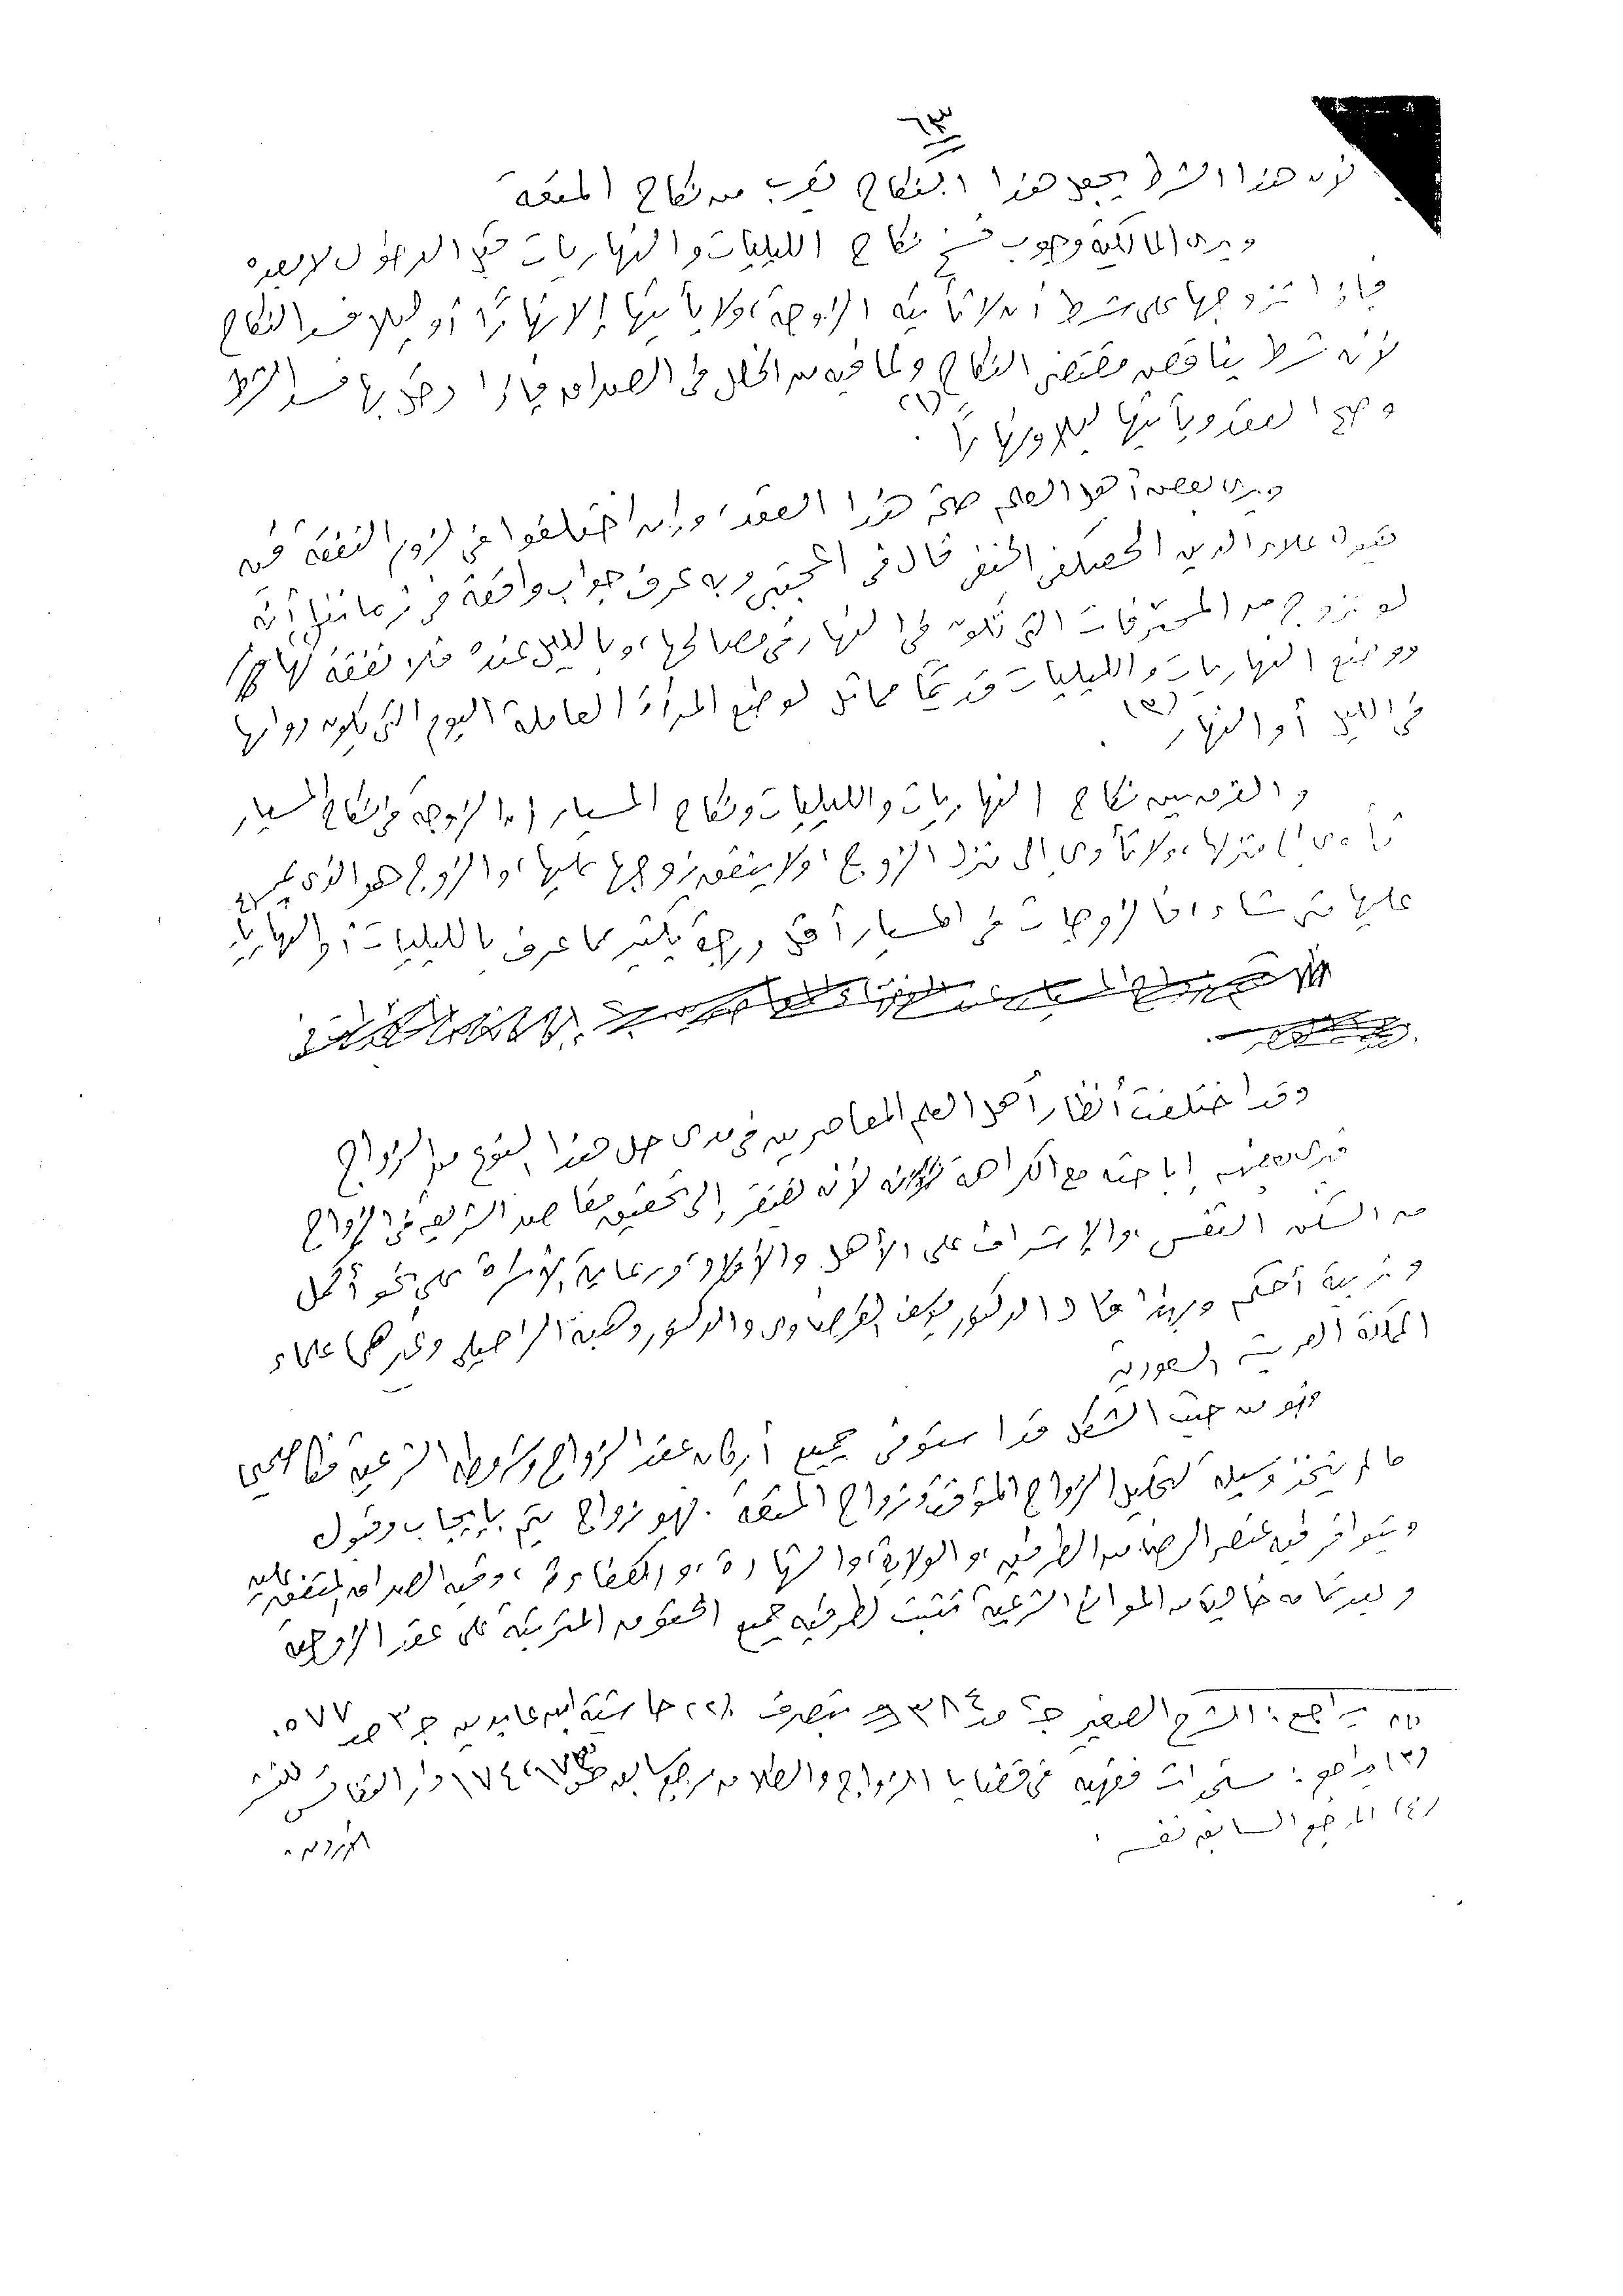 ٦٣
لأن هذا الشرط يجعل هذا النكاح يقرب من نكاح المتعة
ويرى المالكية وجوب فسخ نكاح الليليات والنهاريات قبل الدخول لا بعده
فإذا تزوجها على شرط أن لا تأتيه الزوجة، ولا يأتيها إلا نهارًا أو ليلا فسد النكاح
لأنه شرط يناقض مقتضى النكاح ولما فيه من الخلل في الصداق فإذا دخل بها فسد الشرط
وصح العقد ويأتيها ليلا ونهارًا (١).
ويرى بعض أهل العلم صحة هذا العقد، وإن اختلفوا في لزوم النفقة فيه
يقول علاء الدين الحصكفي الحنفي قال في المجتبى وبه عرف جواب واقعة في زماننا أنه
لو تزوج من المحترفات التي تكون في النهار في مصالحها، وبالليل عنده فلا نفقة لها
ووضع النهاريات والليليات قديمًا مماثل لوضع المرأة العاملة اليوم التي يكون دوامها
في الليل أو النهار (٣).
والفرق بين نكاح النهاريات والليليات ونكاح المسيار أن الزوجة في نكاح المسيار
منزلها، ولا تأوي إلى منزل الزوج، ولا ينفق زوجها عليها، والزوج هو الذي
عليها متى شاء فالزوجات في المسيار أقل درجة بكثير مما عرف بالليليات أو النهاريات
وقد اختلفت أنظار أهل العلم المعاصرين في مدى حل هذا النوع من الزواج
فيرى بعضهم إباحته مع الكراهة لأنه يفتقر إلى تحقيق مقاصد الشريعة في الزواج
من السكن النفسي والإشراف على الأهل والأولاد ورعاية الأسرة على نحو أكمل
وتربية أحكم وبهذا قال الدكتور يوسف القرضاوي والدكتور وهبة الزحيلي وغيرهما علماء
المملكة العربية السعودية
فهو من حيث الشكل قد استوفى جميع أركان عقد الزواج وشروطه الشرعية
ما لم يتخذ وسيلة لتحليل الزواج المؤقت وزواج المتعة. فهو زواج يتم بإيجاب وقبول
ويتوافر فيه عنصر الرضا من الطرفين، والولاية، والشهادة، والكفاءة، وفيه الصداق المتفق عليه
وبعد تمامه خاليًا من الموانع الشرعية تثبت لطرفيه جميع الحقوق المترتبة على عقد الزوجية
(١) يراجع: الشرح الصغير ج٢ صـ ٣٨٤ بتصرف (٢) حاشية ابن عابدين ج٣ صـ ٥٧٧.
(٣) يراجع: مستجدات فقهية في قضايا الزواج والطلاق مرجع سابق صـ ١٧٣، ١٧٤ دار النفائس للنشر
الأردن.
(٤) المرجع السابق نفسه.